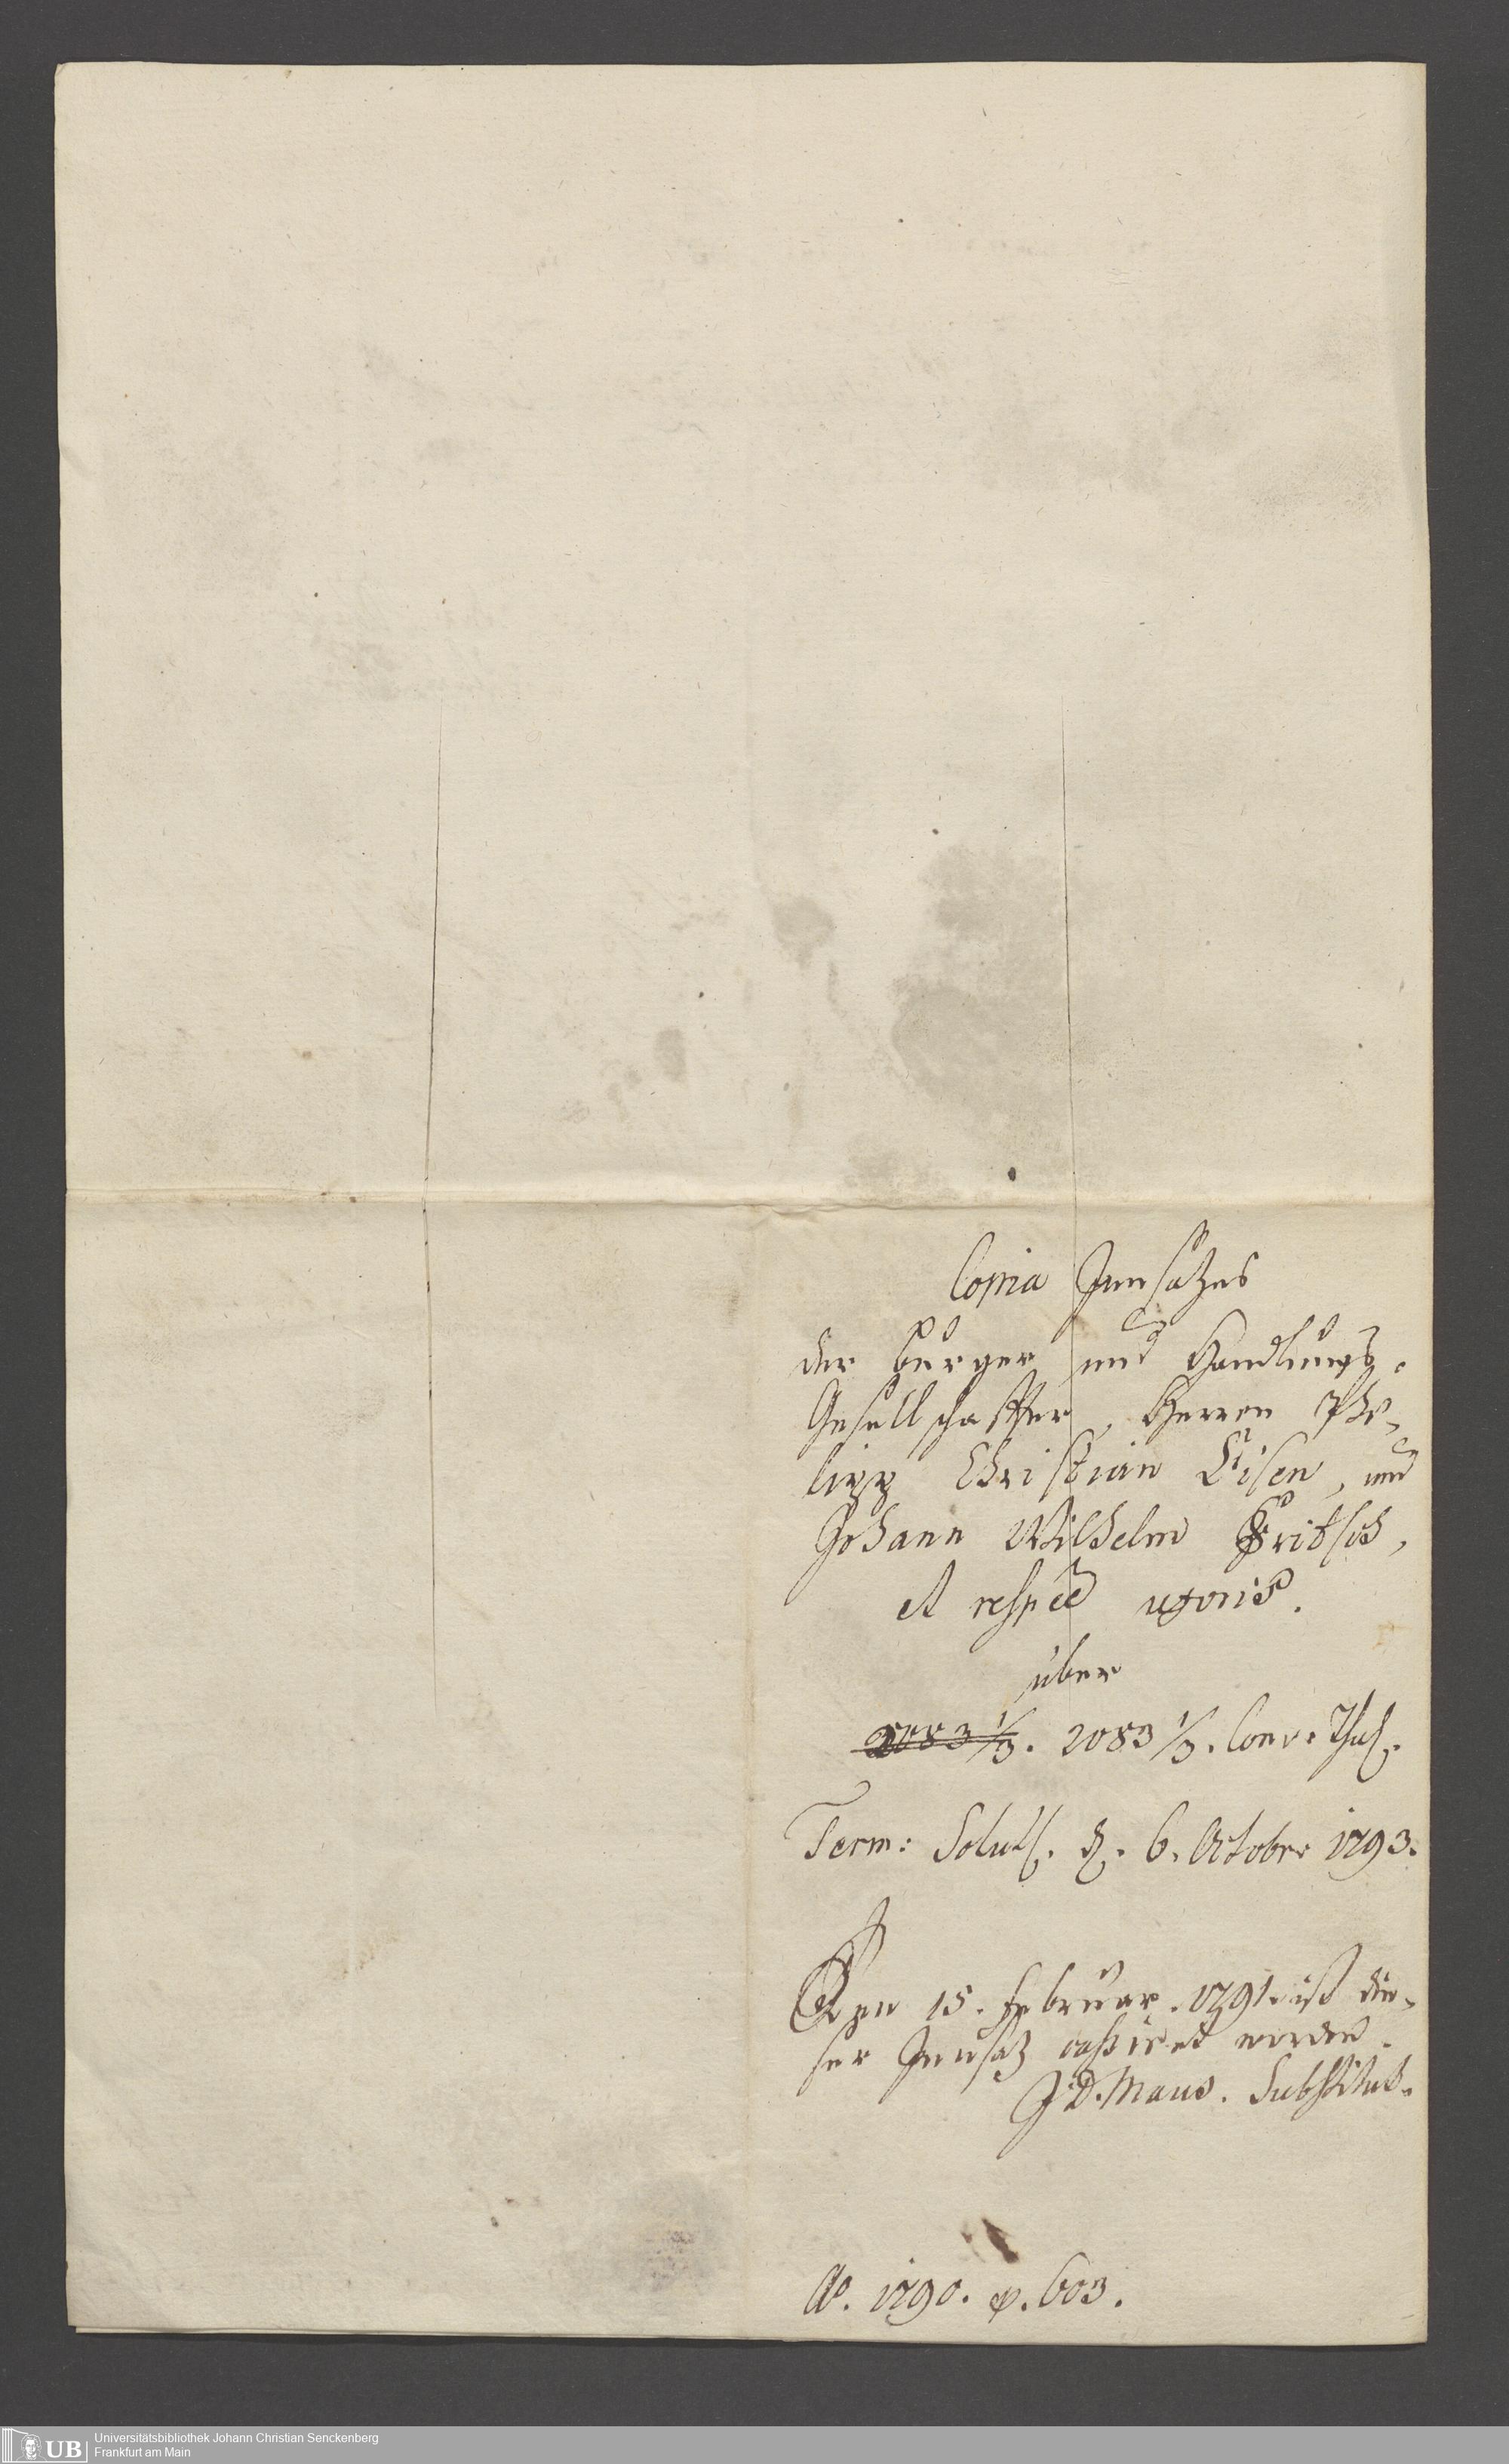 Copia Innsatzes
der burger und Handlungs-
Gesellschaffter, Herren Phi-
lipp Christian Eisen, und
Johann Wilhelm Fritsch,
et respec uxoris.
über
2083 1/3. 2083 1/3. Conv: Thlr.
Term: Solut. d. 6. October 1793.
Den 15. Februar. 1791. ist die-
ser Innsatz cassiret worden.
J. D. Maus. Substitut.
Ao. 1790. p. 603.
UB
Universitätsbibliothek Johann Christian Senckenberg
Frankfurt am Main